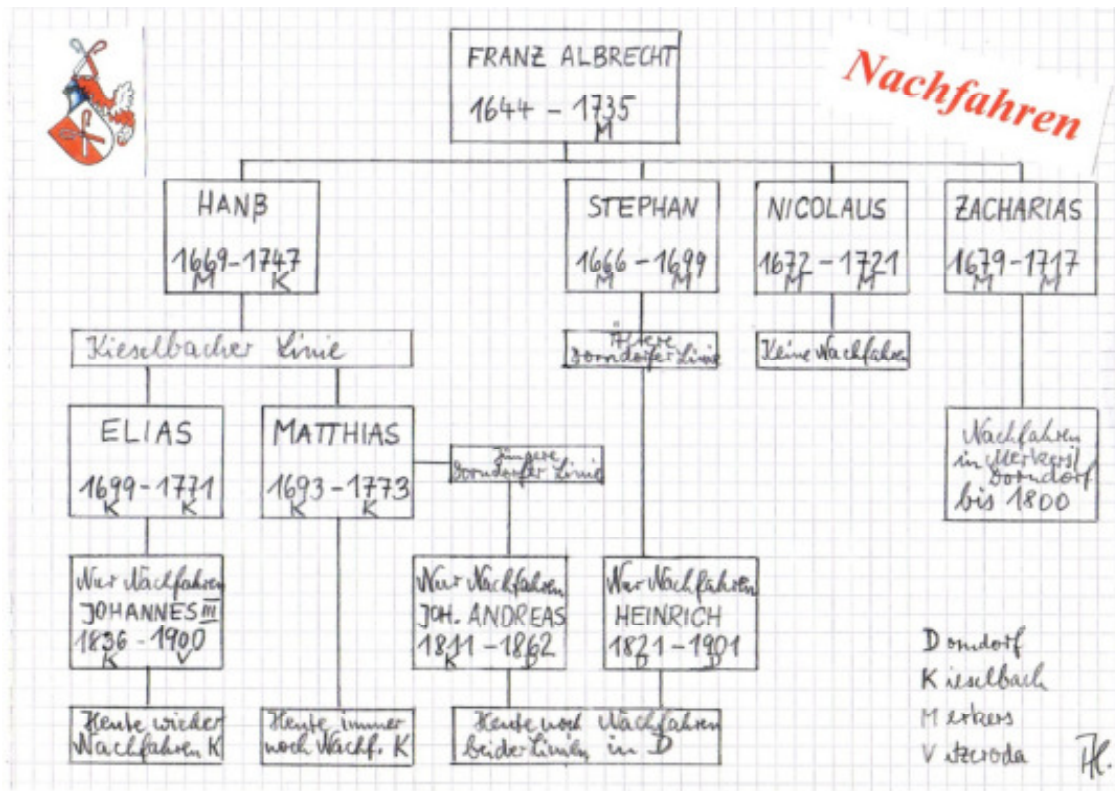 FRANZ ALBRECHT
1644 – 1735
M
Nachfahren
HANß
1669 – 1747
M K
STEPHAN
1666 – 1699
M M
NICOLAUS
1672 – 1721
M M
ZACHARIAS
1679 – 1717
M M
Kieselbacher Linie
Ältere
Dorndorfer Linie
Keine Nachfahren
ELIAS
1699 – 1771
K K
MATTHIAS
1693 – 1773
K K
Jüngere
Dorndorfer Linie
Nachfahren
in Merkers/
Dorndorf
bis 1800
Nur Nachfahren
JOHANNES III
1836 – 1900
K V
Nur Nachfahren
JOH. ANDREAS
1811 – 1862
K D
Nur Nachfahren
HEINRICH
1821 – 1901
D D
Heute wieder
Nachfahren K
Heute immer
noch Nachf. K
Heute noch Nachfahren
beider Linien in D
Dorndorf
Kieselbach
Merkers
Vitzeroda